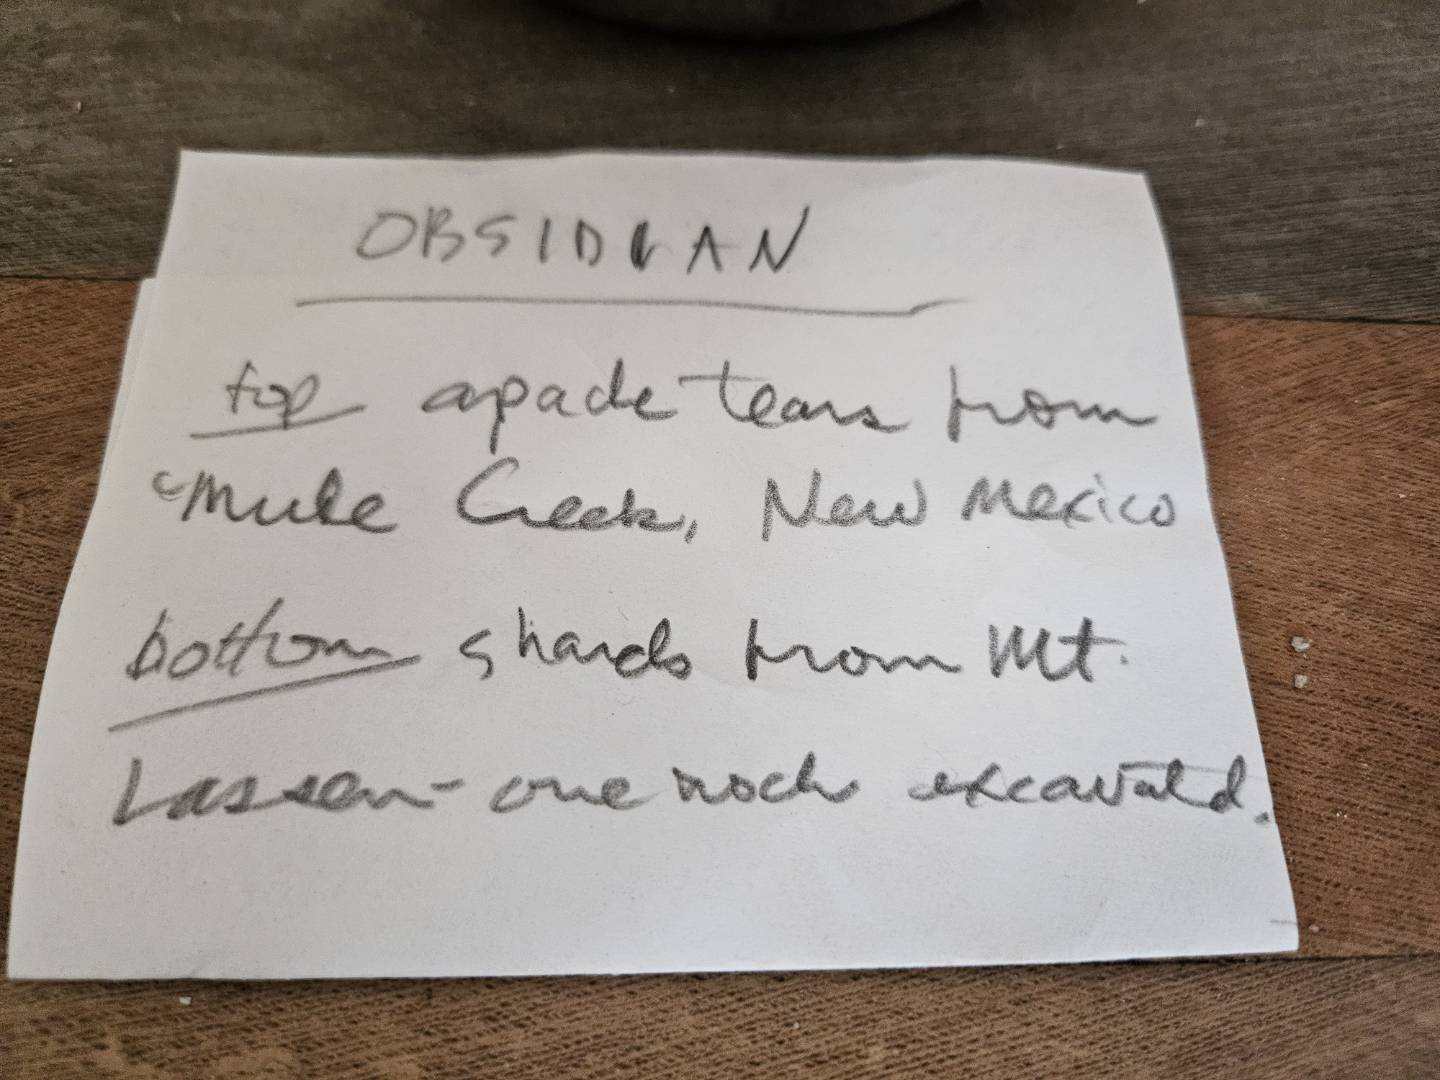 OBSIDIAN
top apache tears from
Mule Creek, New Mexico
bottom shards from Mt.
Lassen - one rock excavated.